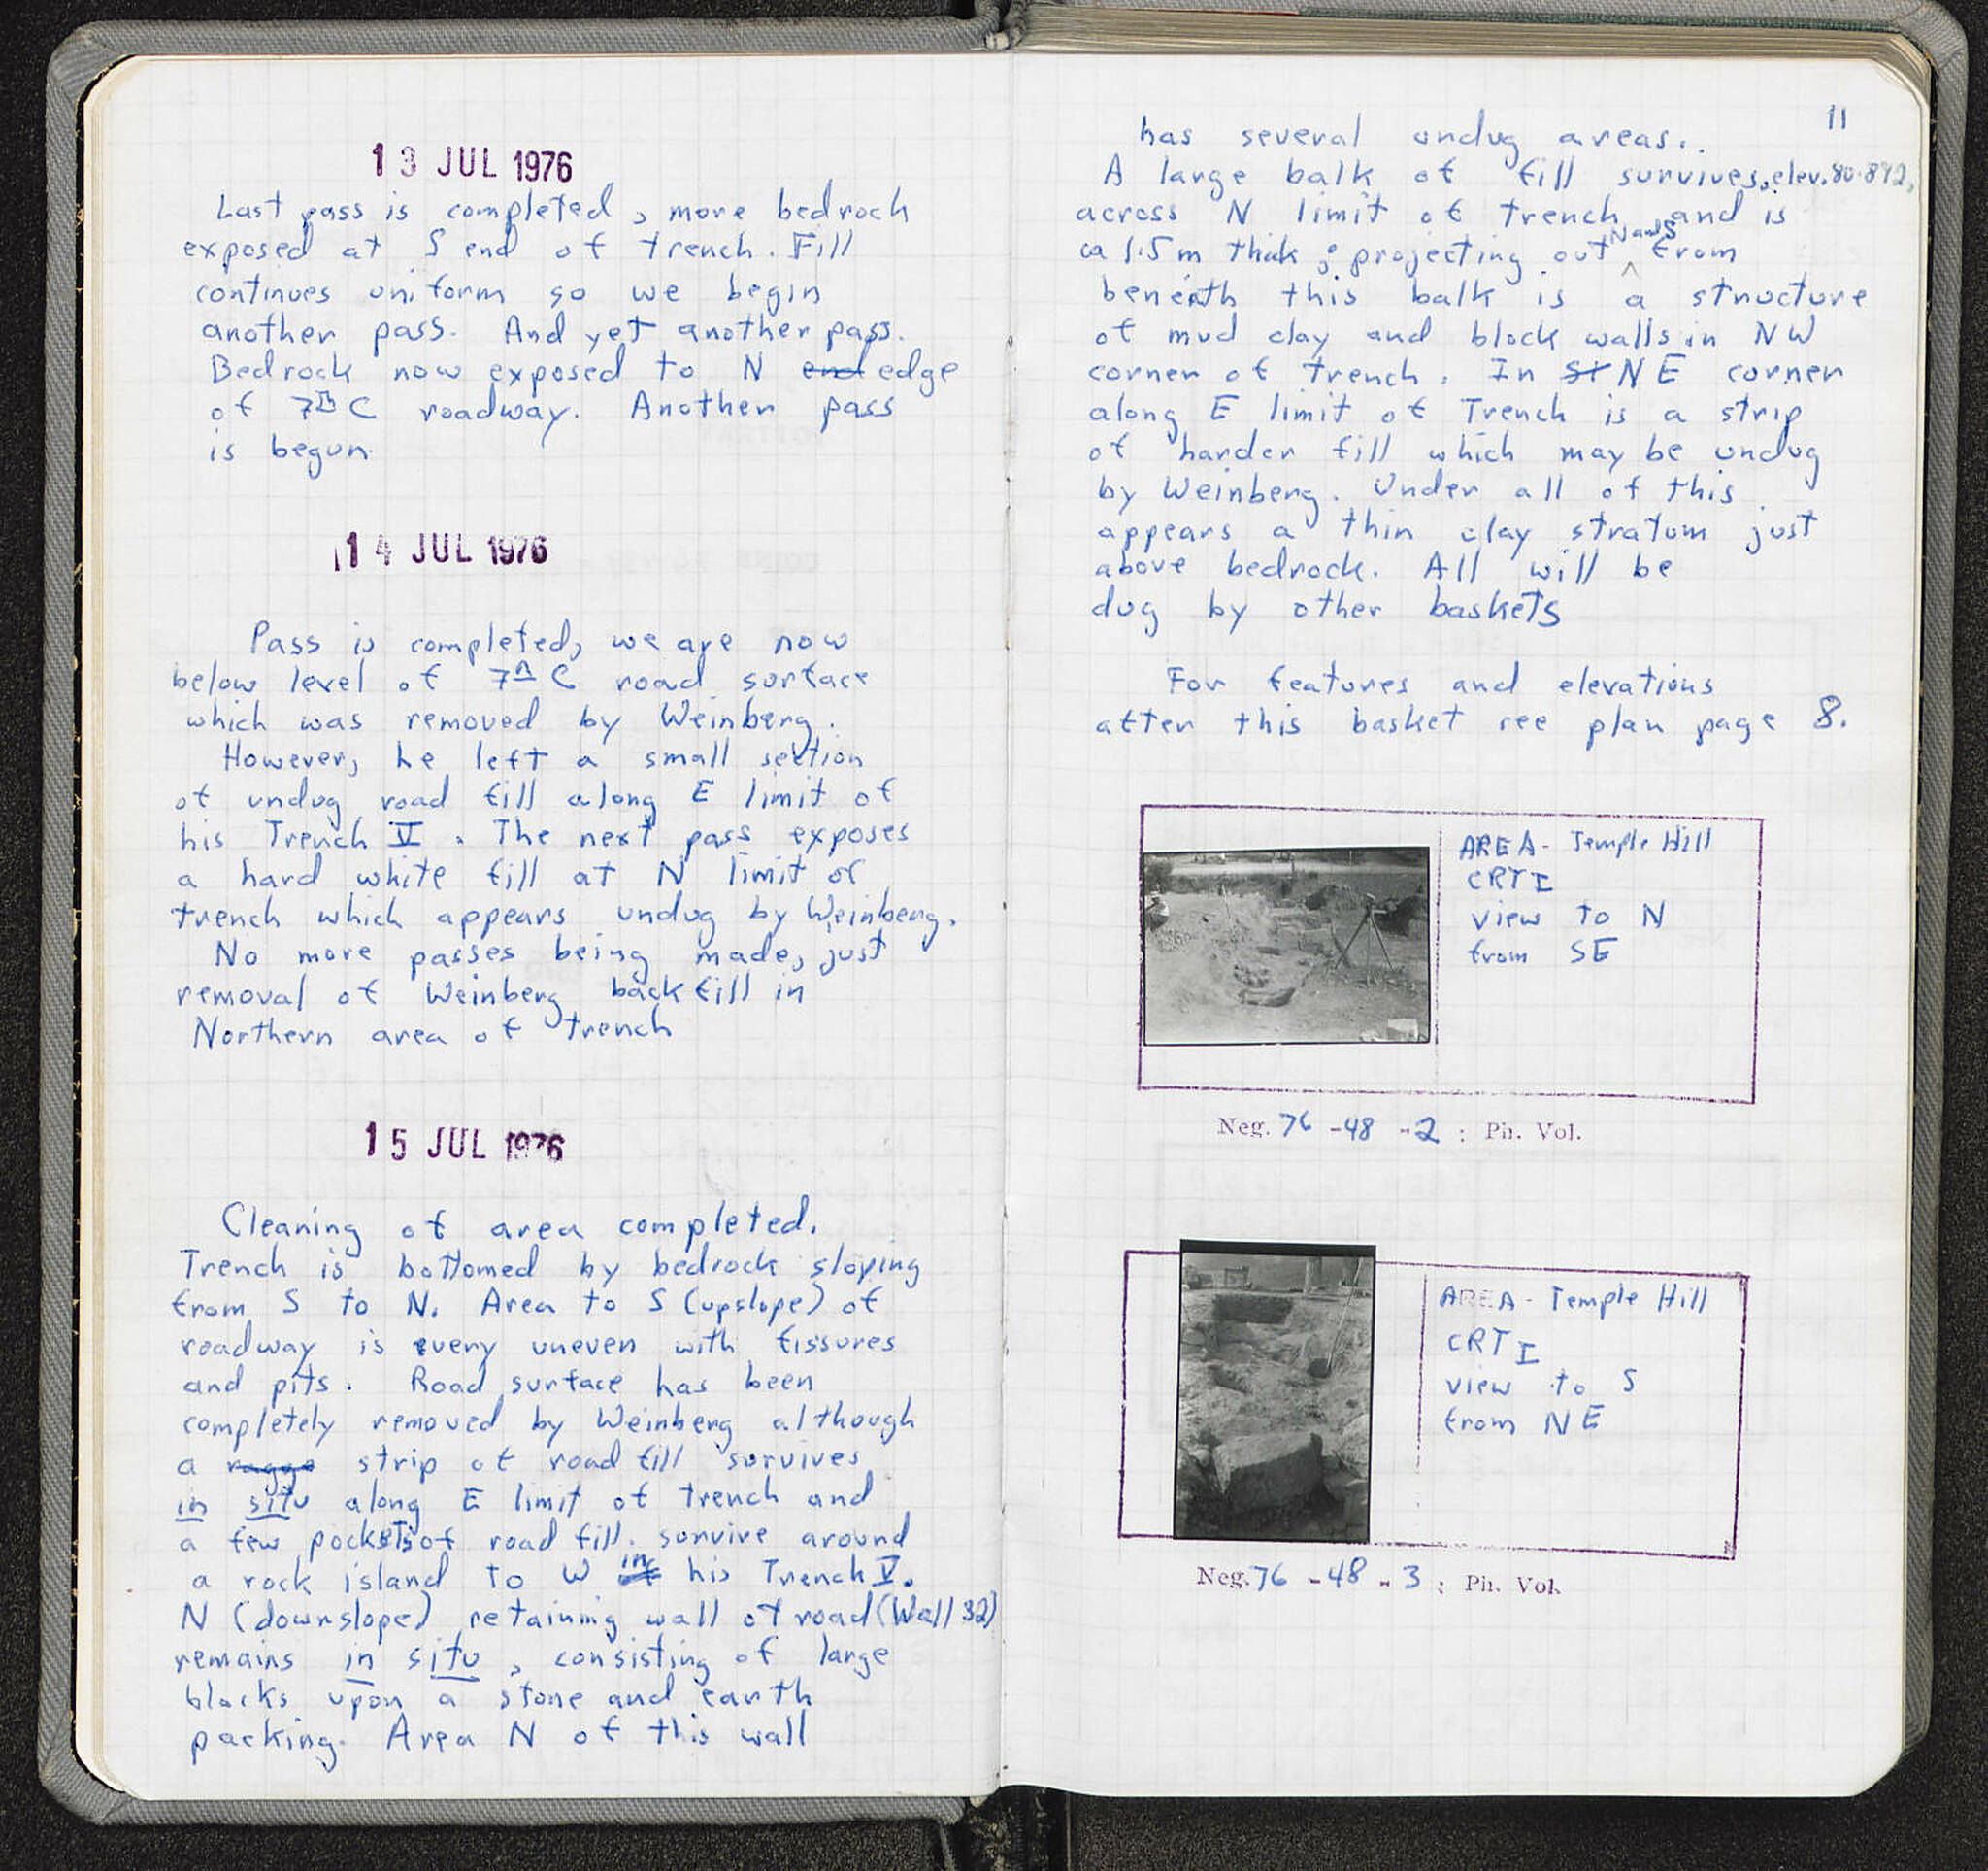 13 JUL 1976
Last pass is completed, more bedrock
exposed at S end of trench. Fill
continues uniform so we begin
another pass. And yet another pass.
Bedrock now exposed to N end edge
of 7th C roadway. Another pass
is begun.
14 JUL 1976
Pass is completed, we are now
below level of 7th C road surface
which was removed by Weinberg.
However, he left a small section
of undug road fill along E limit of
his Trench V. The next pass exposes
a hard white fill at N limit of
trench which appears undug by Weinberg.
No more passes being made, just
removal of Weinberg backfill in
Northern area of trench
15 JUL 1976
Cleaning of area completed.
Trench is bottomed by bedrock sloping
from S to N. Area to S (upslope) of
roadway is very uneven with fissures
and pits. Road surface has been
completely removed by Weinberg although
a ragge strip of road fill survives
in situ along E limit of trench and
a few pockets of road fill survive around
a rock island to W in his Trench V.
N (downslope) retaining wall of road (Wall 32)
remains in situ, consisting of large
blocks upon a stone and earth
packing. Area N of this wall
11
has several undug areas..
A large balk of fill survives, elev. 80.842,
across N limit of trench and is
ca 1.5m thick; projecting out N and S from
beneath this balk is a structure
of mud clay and block walls in NW
corner of trench. In St NE corner
along E limit of Trench is a strip
of harder fill which may be undug
by Weinberg. Under all of this
appears a thin clay stratum just
above bedrock. All will be
dug by other baskets
For features and elevations
after this basket see plan page 8.
AREA - Temple Hill
CRT I
view to N
from SE
Neg. 76 - 48 - 2 : Ph. Vol.
AREA - Temple Hill
CRT I
view to S
from NE
Neg. 76 - 48 - 3 : Ph. Vol.